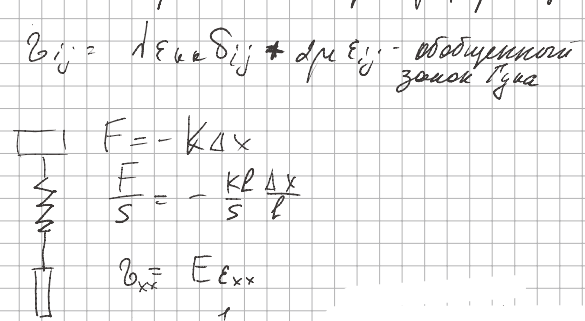 τij = λεkkδij + 2μ εij – обобщенный
закон Гука
F = - KΔx
F/S = - Kl/S Δx/l
τxx = Eεxx